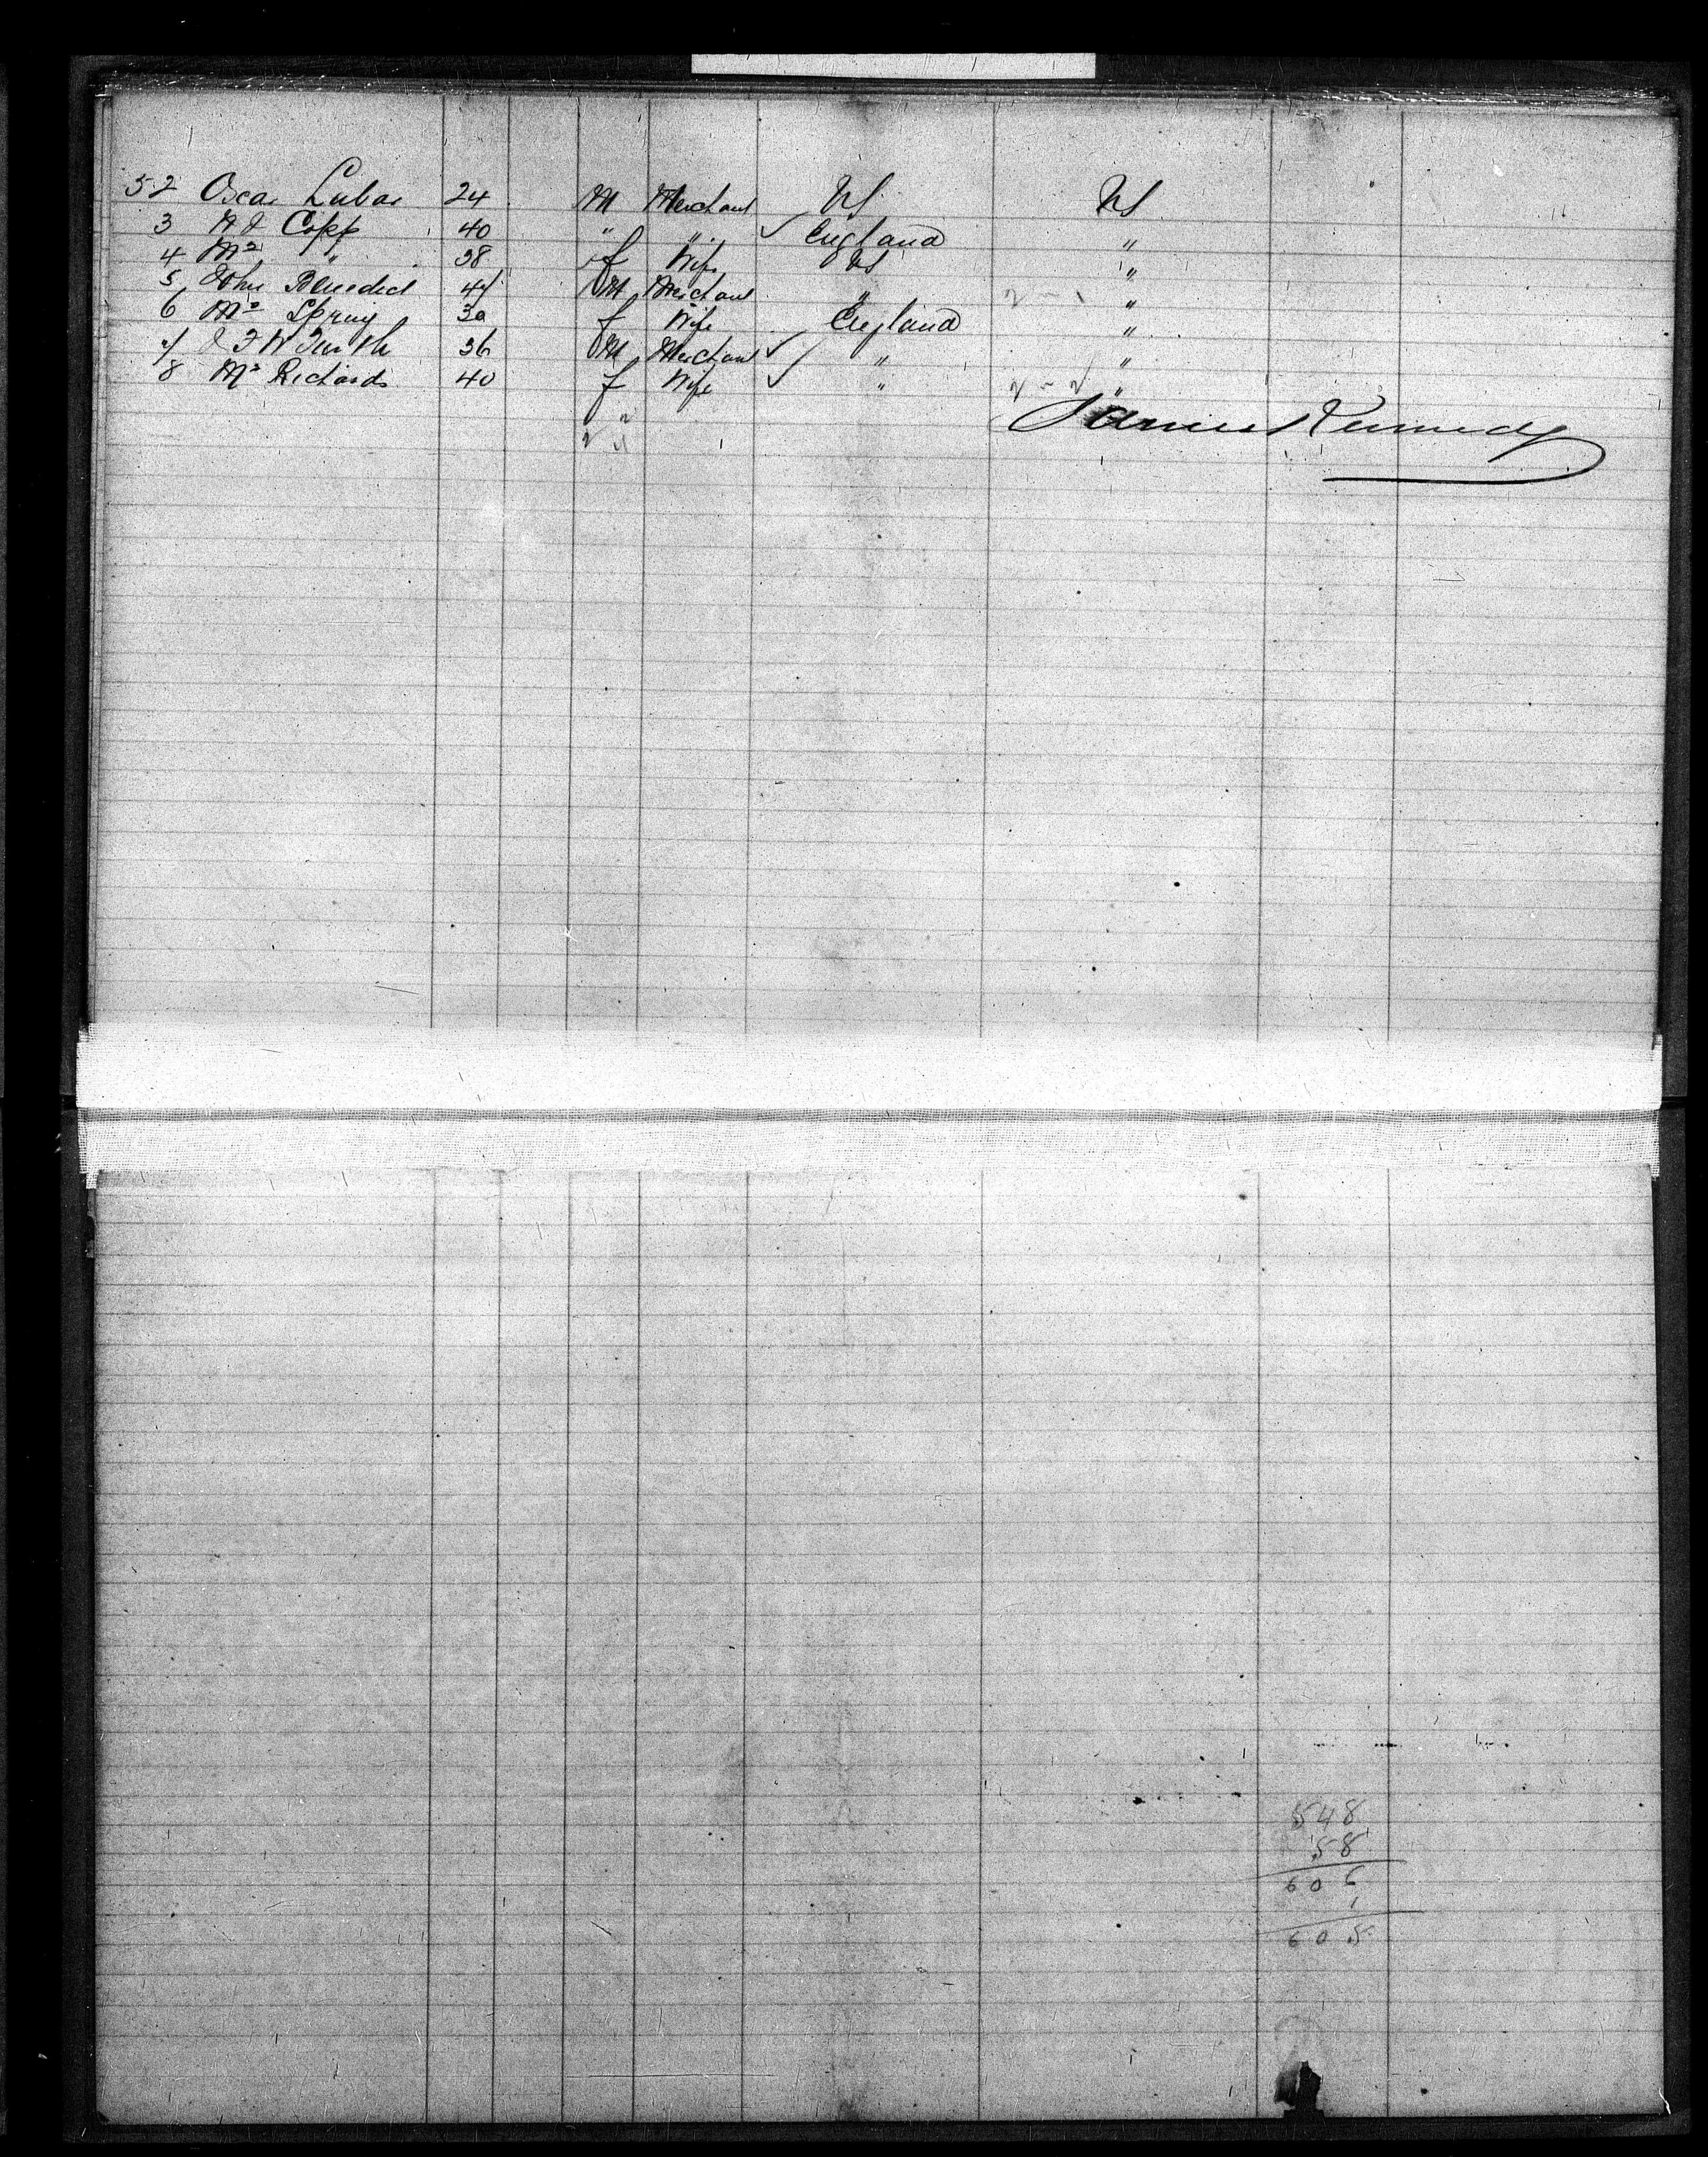 52 Oscar Lubar 24 M Merchant US US
3 A J Copp 40 " " England "
4 Mrs " 38 f Wife US "
5 John Benedict 44 M Merchant " "
6 Mrs Spring 30 f Wife England "
7 36 M Merchant " "
8 Mrs Richards 40 f Wife " "
James Kennedy
548
58
606
1
605